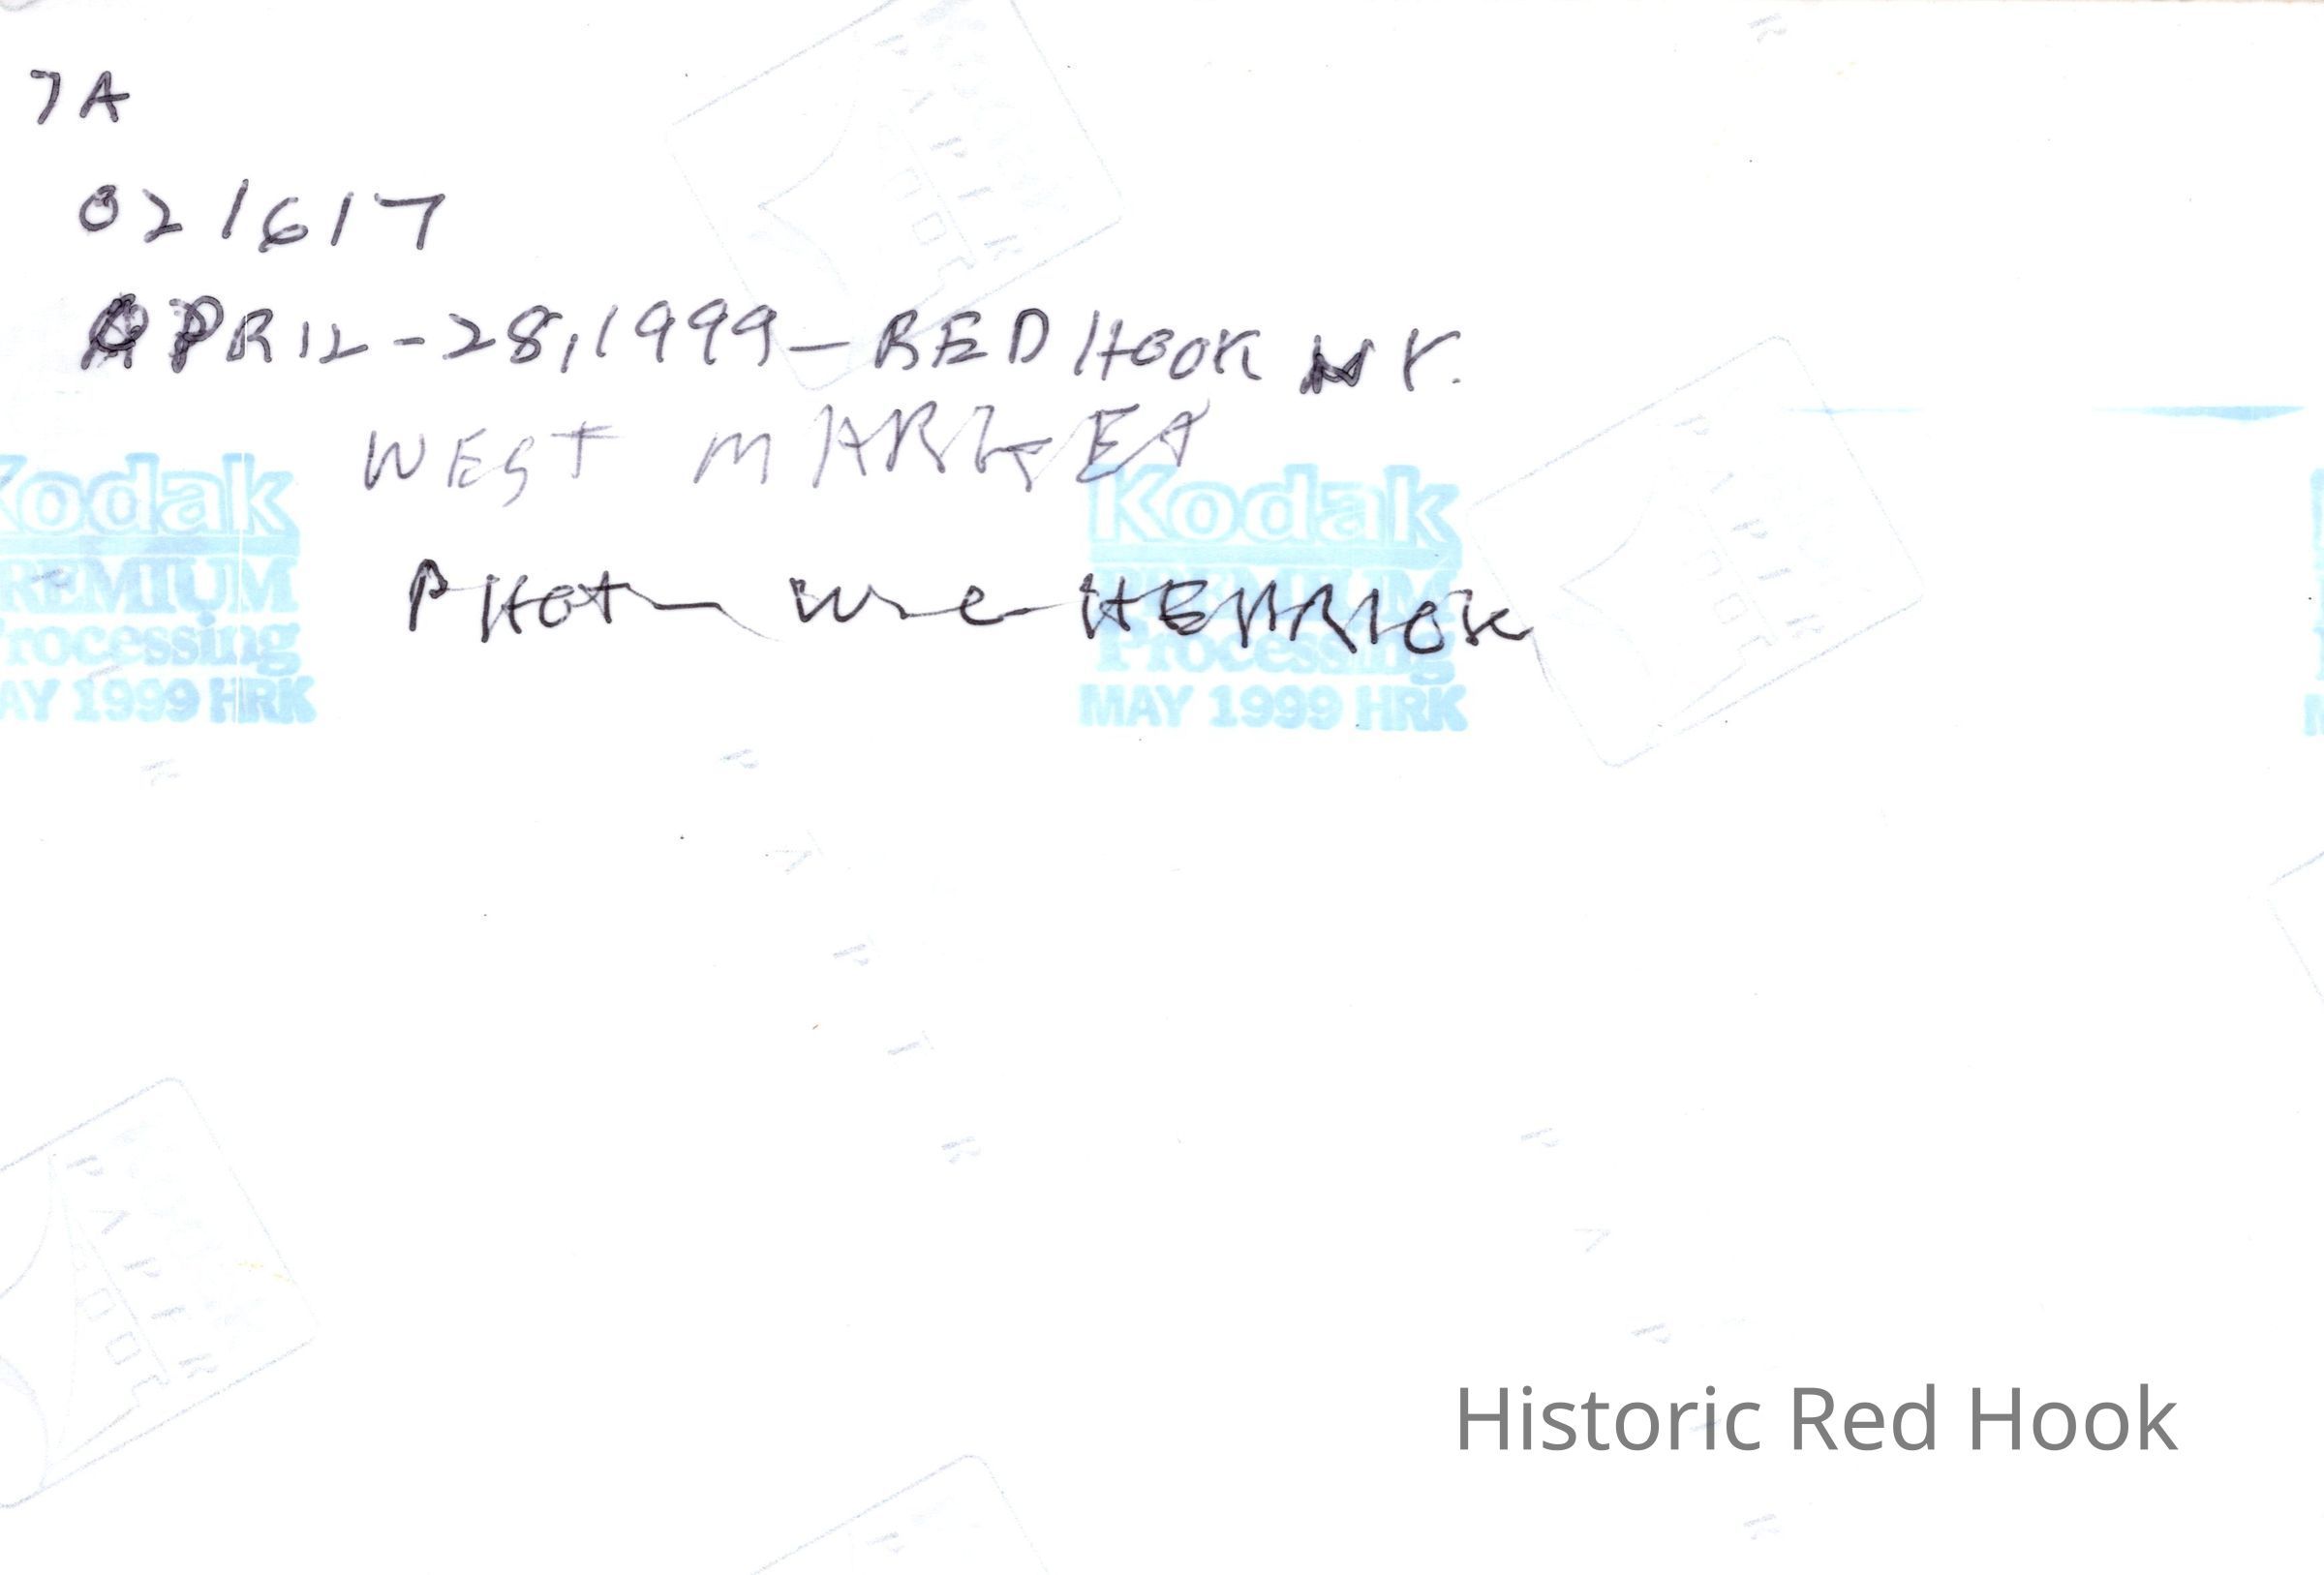 7A
021617
APRIL-28,1999-RED HOOK NY.
WEST MARKET
PHOTO
HERRICK
Kodak
PREMIUM
Processing
MAY 1999 HRK
Kodak
PREMIUM
Processing
MAY 1999 HRK
KODAK
PAPER
PAPIER
Historic Red Hook